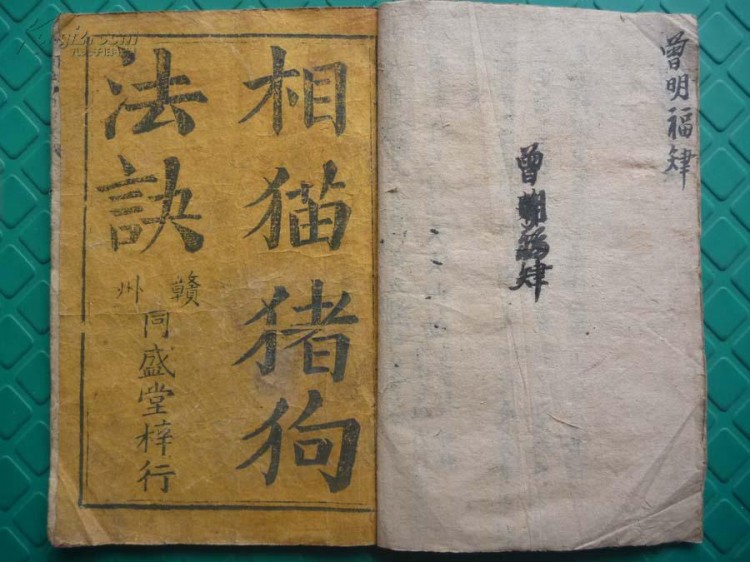 曾明福肄
曾明福肄
相猫猪狗
法訣
贛州
同盛堂梓行